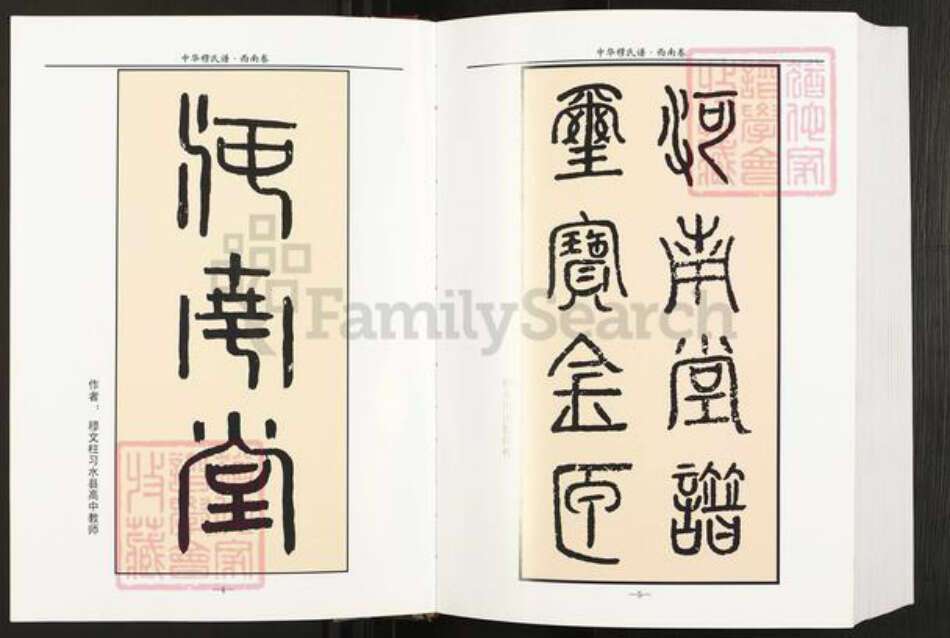 中华穆氏谱·西南卷
河南堂
作者：穆文柱习水县高中教师
—4—
中华穆氏谱·西南卷
河南堂譜
璽寶金匠
—5—
FamilySearch
譜學會
收藏